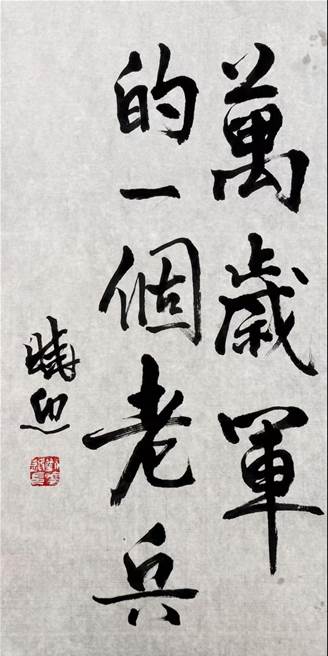 萬歲軍
的一個老兵